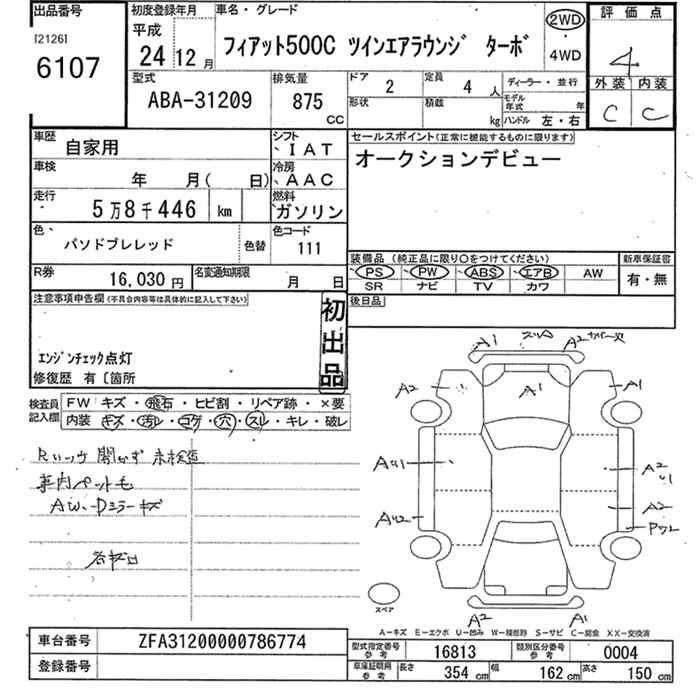 出品番号
[2126]
6107
初度登録年月
平成
24 12 月
車名・グレード
フィアット500C ツインエアラウンジ ターボ
2WD
・
4WD
評価点
4
外装 内装
C C
型式
ABA-31209
排気量
875
CC
ドア
2
定員
4 人
形状
積載
kg
ディーラー・並行
モデル年式 年
ハンドル 左・右
車歴
自家用
シフト
IAT
車検
年 月( 日)
冷房
AAC
走行
5万8千446 km
燃料
ガソリン
色
パソドブレレッド
色替
色コード
111
R券
16,030 円
名変通知期限
月 日
セールスポイント(正常に機能するものに限ります)
オークションデビュー
装備品 (純正品に限り〇をつけてください)
PS PW ABS エアB AW
SR ナビ TV カワ
新車保証書
有・無
後日品
注意事項申告欄(不具合内容等は具体的に記入して下さい)
初出品
エンジンチェック点灯
修復歴 有〔箇所
検査員記入欄
FW キズ・飛石・ヒビ割・リペア跡・×要
内装 キズ・汚レ・コゲ・穴・スレ・キレ・破レ
車内ペット毛
AW、Dミラーキズ
A1
A2
A2
A1
A1
A2
A2
A2
A1
スペア
A−キズ E−エクボ U−凹み W−補修跡 S−サビ C−腐食 XX−交換済
車台番号
ZFA31200000786774
登録番号
型式指定番号 参考
16813
類別区分番号 参考
0004
車庫証明用 参考
長さ 354 cm 幅 162 cm 高さ 150 cm